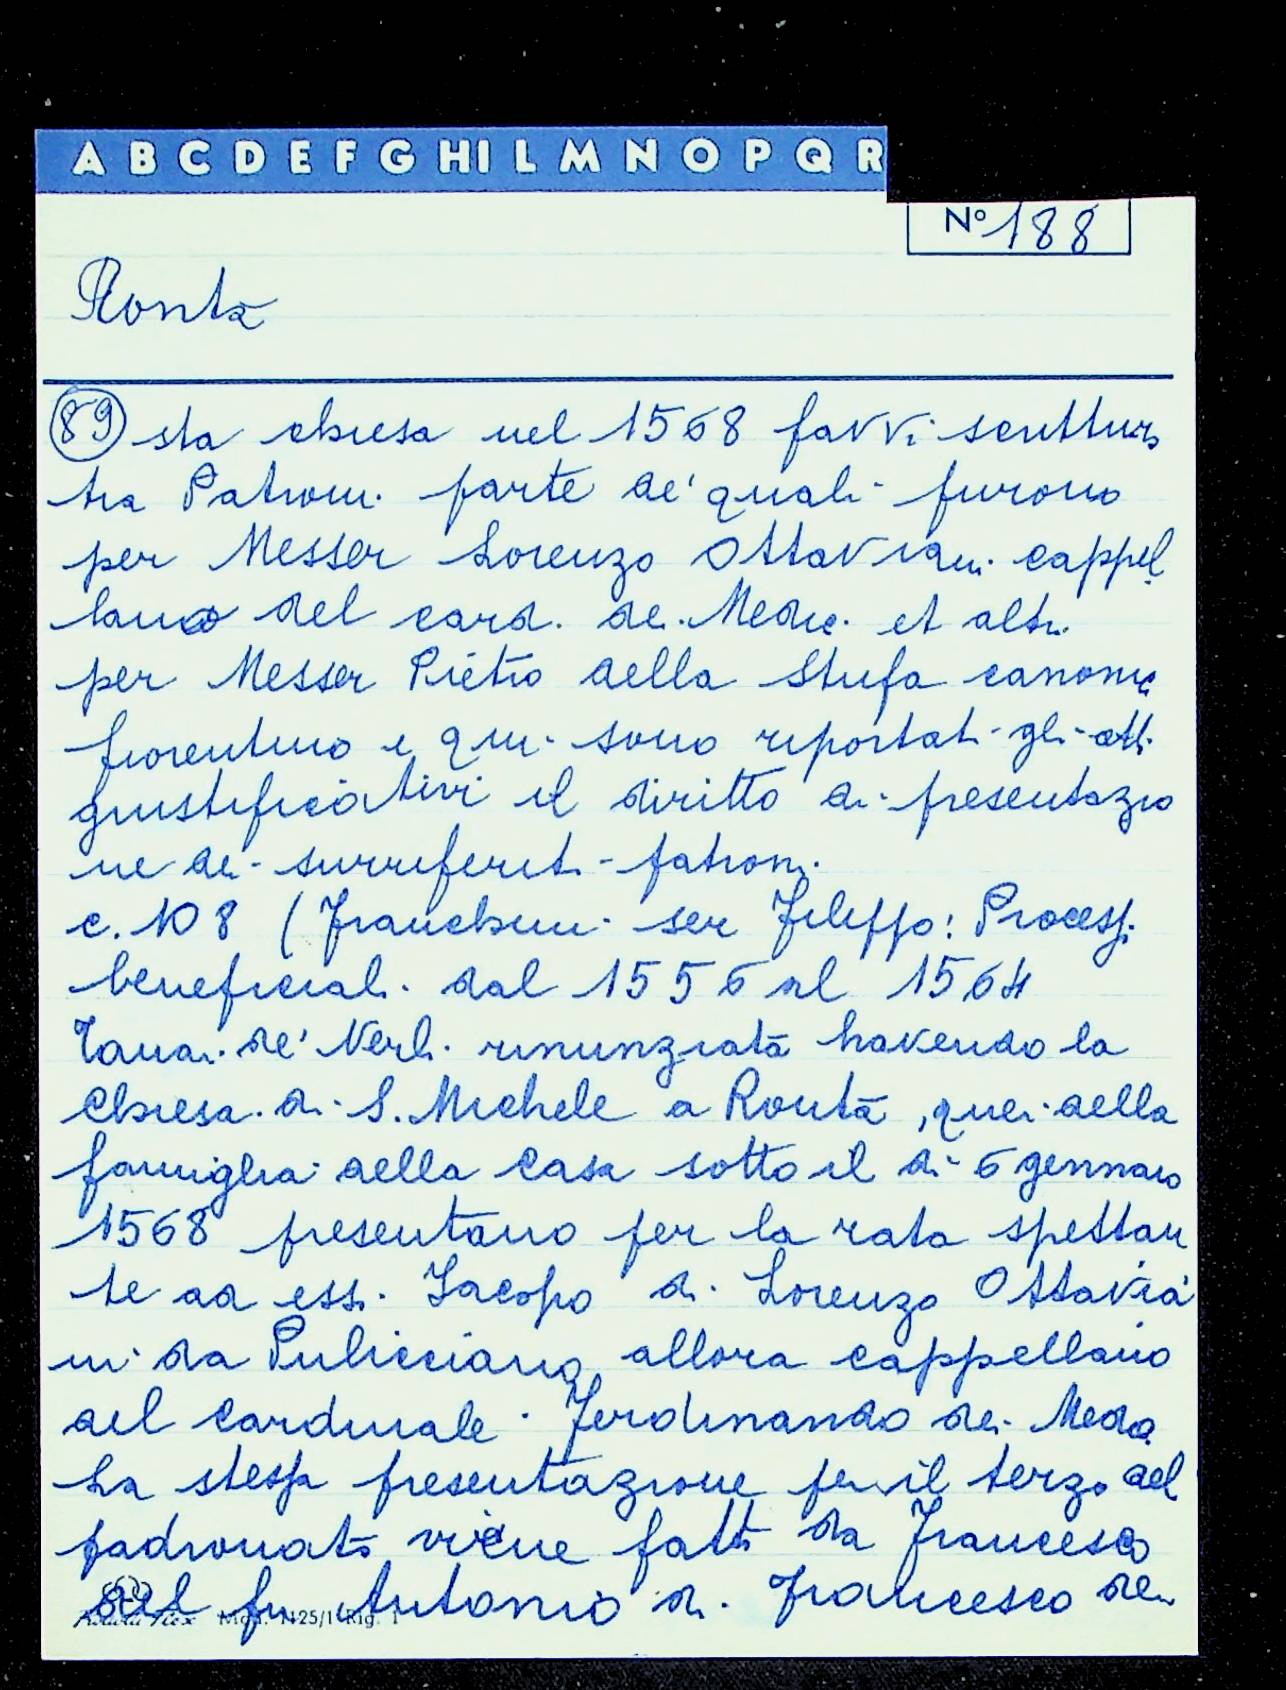 A B C D E F G H I L M N O P Q R
N° 188
Ronta
89 sta chiesa nel 1568 favvi scrittura
tra Patroni parte de' quali furono
per Messer Lorenzo Ottaviani cappel
lano del card. dei Medici et altri
per Messer Pietro della Stufa canonic
fiorentino e qui sono riportati gli atti
giustificativi il diritto di presentazio
ne dei surriferiti patroni.
c. 108 (Franchini ser Filippo: Processi
beneficiali dal 1556 al 1564
Tanai de' Nerli rinunziata havendo la
Chiesa di S. Michele a Ronta, quei della
famiglia della Casa sotto il dì 6 gennaio
1568 presentano per la rata spettan
te ad essi Jacopo di Lorenzo Ottavia
ni da Pulicciano allora cappellano
del cardinale Ferdinando dei Medici
La stessa presentazione per il terzo del
padronato viene fatta da Francesco
del fu Antonio di Francesco dei
Mod. 1125/1 Rig. 1